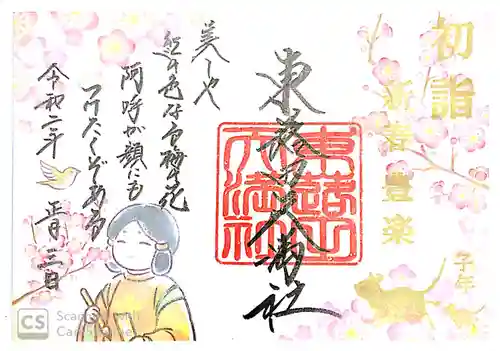 初詣
新春豊楽
子年
東蕗田天満社
東蕗田
天満社
美しや
紅の色なる梅の花
阿呼が顔にも
つけたくぞある
令和二年
正月三日
CS